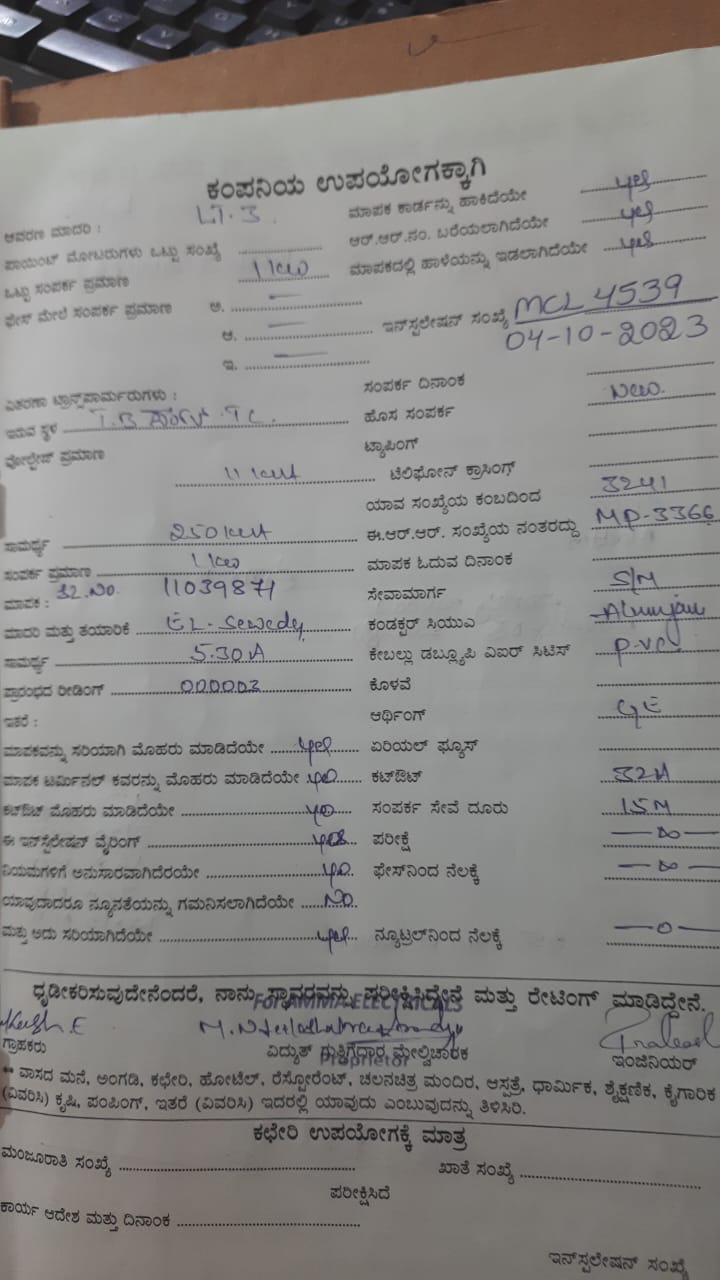 ಕಂಪನಿಯ ಉಪಯೋಗಕ್ಕಾಗಿ
ಆವರಣ ಮಾದರಿ : LT.3 ಮಾಪಕ ಕಾರ್ಡನ್ನು ಹಾಕಿದೆಯೇ yes
ಪಾಯಿಂಟ್ ಮೋಟರುಗಳು ಒಟ್ಟು ಸಂಖ್ಯೆ ಆರ್.ಆರ್.ನಂ. ಬರೆಯಲಾಗಿದೆಯೇ yes
ಒಟ್ಟು ಸಂಪರ್ಕ ಪ್ರಮಾಣ 1 kw ಮಾಪಕದಲ್ಲಿ ಹಾಳೆಯನ್ನು ಇಡಲಾಗಿದೆಯೇ yes
ಫೇಸ್ ಮೇಲೆ ಸಂಪರ್ಕ ಪ್ರಮಾಣ ಅ.
ಆ. ಇನ್‌ಸ್ಟಲೇಷನ್ ಸಂಖ್ಯೆ MCL 4539
04-10-2023
ಇ.
ವಿತರಣಾ ಟ್ರಾನ್ಸ್‌ಫಾರ್ಮರುಗಳು : ಸಂಪರ್ಕ ದಿನಾಂಕ
ಇರುವ ಸ್ಥಳ T.B TC. ಹೊಸ ಸಂಪರ್ಕ New.
ವೋಲ್ಟೇಜ್ ಪ್ರಮಾಣ 11 ಟ್ಯಾಪಿಂಗ್
ಟೆಲಿಫೋನ್ ಕ್ರಾಸಿಂಗ್
ಯಾವ ಸಂಖ್ಯೆಯ ಕಂಬದಿಂದ 3241
ಸಾಮರ್ಥ್ಯ 250 ಈ.ಆರ್.ಆರ್. ಸಂಖ್ಯೆಯ ನಂತರದ್ದು MP-3366
ಸಂಪರ್ಕ ಪ್ರಮಾಣ 1 kw ಮಾಪಕ ಓದುವ ದಿನಾಂಕ
ಮಾಪಕ : SL.No. 11039871 ಸೇವಾಮಾರ್ಗ S/M
ಮಾದರಿ ಮತ್ತು ತಯಾರಿಕೆ EL. Sewedy ಕಂಡಕ್ಟರ್ ಸಿಯುಎ
ಸಾಮರ್ಥ್ಯ 5.30A ಕೇಬಲ್ಲು ಡಬ್ಲ್ಯೂಪಿ ವಿಐಆರ್ ಸಿಟಿಸ್ P.VC
ಪ್ರಾರಂಭದ ರೀಡಿಂಗ್ 000003 ಕೊಳವೆ
ಇತರೆ : ಆರ್ಥಿಂಗ್ GE
ಮಾಪಕವನ್ನು ಸರಿಯಾಗಿ ಮೊಹರು ಮಾಡಿದೆಯೇ yes ಏರಿಯಲ್ ಫ್ಯೂಸ್
ಮಾಪಕ ಟರ್ಮಿನಲ್ ಕವರನ್ನು ಮೊಹರು ಮಾಡಿದೆಯೇ yes ಕಟ್‌ಔಟ್ 32A
ಕಟ್‌ಔಟ್ ಮೊಹರು ಮಾಡಿದೆಯೇ yes ಸಂಪರ್ಕ ಸೇವೆ ದೂರು 15M
ಈ ಇನ್‌ಸ್ಟಲೇಷನ್ ವೈರಿಂಗ್ yes ಪರೀಕ್ಷೆ — ∞ —
ನಿಯಮಗಳಿಗೆ ಅನುಸಾರವಾಗಿದೆರಯೇ yes ಫೇಸ್‌ನಿಂದ ನೆಲಕ್ಕೆ — ∞ —
ಯಾವುದಾದರೂ ನ್ಯೂನತೆಯನ್ನು ಗಮನಿಸಲಾಗಿದೆಯೇ No
ಮತ್ತು ಅದು ಸರಿಯಾಗಿದೆಯೇ yes ನ್ಯೂಟ್ರಲ್‌ನಿಂದ ನೆಲಕ್ಕೆ — 0 —
ಧೃಡೀಕರಿಸುವುದೇನೆಂದರೆ, ನಾನು ಸ್ಥಾವರವನ್ನು ಪರೀಕ್ಷಿಸಿದ್ದೇನೆ ಮತ್ತು ರೇಟಿಂಗ್ ಮಾಡಿದ್ದೇನೆ.
ಗ್ರಾಹಕರು ವಿದ್ಯುತ್ ಗುತ್ತಿಗೆದಾರ ಮೇಲ್ವಿಚಾರಕ ಇಂಜಿನಿಯರ್
Proprietor
** ವಾಸದ ಮನೆ, ಅಂಗಡಿ, ಕಛೇರಿ, ಹೋಟೆಲ್, ರೆಸ್ಟೋರೆಂಟ್, ಚಲನಚಿತ್ರ ಮಂದಿರ, ಆಸ್ಪತ್ರೆ, ಧಾರ್ಮಿಕ, ಶೈಕ್ಷಣಿಕ, ಕೈಗಾರಿಕ
(ವಿವರಿಸಿ) ಕೃಷಿ, ಪಂಪಿಂಗ್, ಇತರೆ (ವಿವರಿಸಿ) ಇದರಲ್ಲಿ ಯಾವುದು ಎಂಬುವುದನ್ನು ತಿಳಿಸಿರಿ.
ಕಛೇರಿ ಉಪಯೋಗಕ್ಕೆ ಮಾತ್ರ
ಮಂಜೂರಾತಿ ಸಂಖ್ಯೆ ಖಾತೆ ಸಂಖ್ಯೆ
ಪರೀಕ್ಷಿಸಿದೆ
ಕಾರ್ಯ ಆದೇಶ ಮತ್ತು ದಿನಾಂಕ
ಇನ್‌ಸ್ಟಲೇಷನ್ ಸಂಖ್ಯೆ